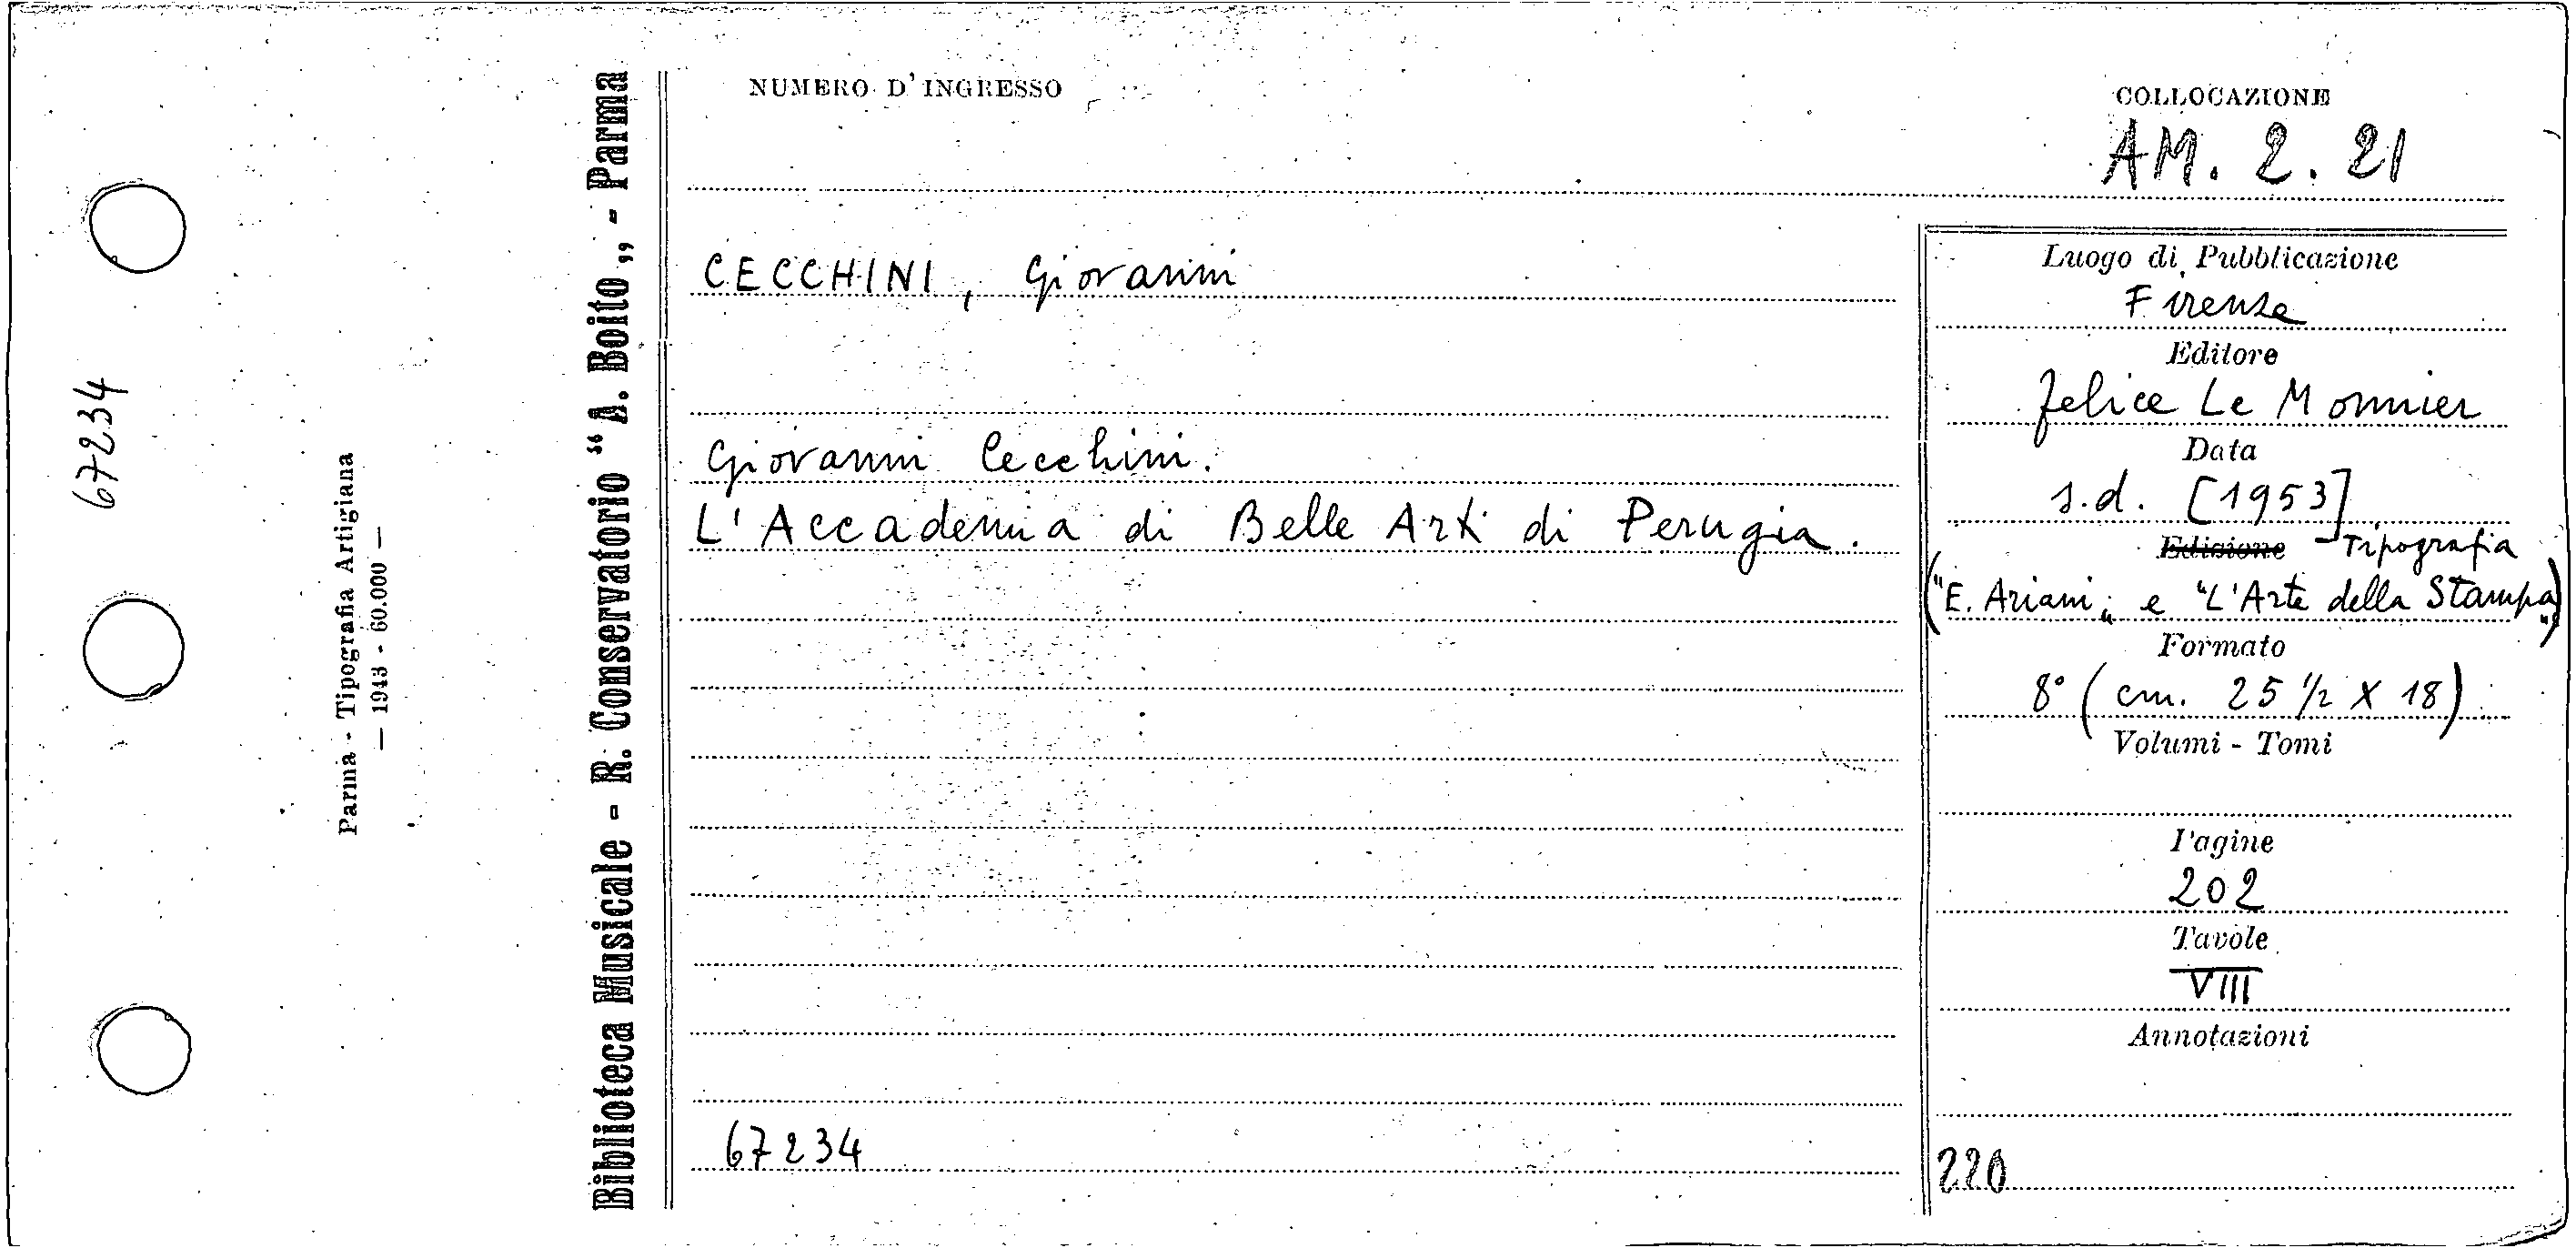 67234
Parma - Tipografia Artigiana
— 1943 - 60.000 —
Biblioteca Musicale - R. Conservatorio “A. Boito„ - Parma
NUMERO D'INGRESSO
COLLOCAZIONE
AM. 2. 21
CECCHINI, Giovanni
Giovanni Cecchini.
L'Accademia di Belle Arti di Perugia.
67234
Luogo di Pubblicazione
Firenze
Editore
Felice Le Monnier
Data
s.d. [1953]
Edizione - Tipografia
("E. Ariani" e "L'Arte della Stampa")
Formato
8° (cm. 25 1/2 X 18)
Volumi - Tomi
Pagine
202
Tavole
VIII
Annotazioni
220